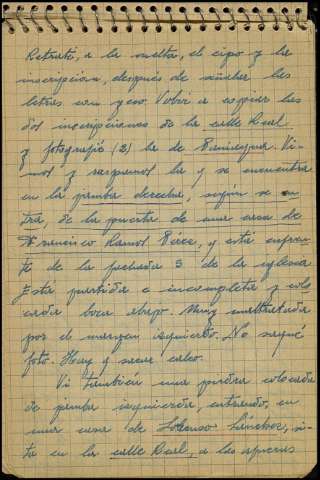 Retraté, a la vuelta, el cipo y la
inscripcion, después de señalar las
letras con yeso. Volví a copiar las
dos inscripciones de la calle Real
y fotografié (2) la de
y se encuentra
en la jamba derecha, según se en-
tra, de la puerta de una casa de
Francisco Ramos Pérez, y está enfren-
te de la fachada S de la iglesia
Está partida e incompleta y colo-
cada boca abajo. Muy maltratada
por el margen izquierdo. No saqué
foto. Hay q sacar calco.
Vi también una piedra colocada
de jamba izquierda, entrando, en
una casa de Ildefonso Sánchez, si-
ta en la calle Real, a las afueras